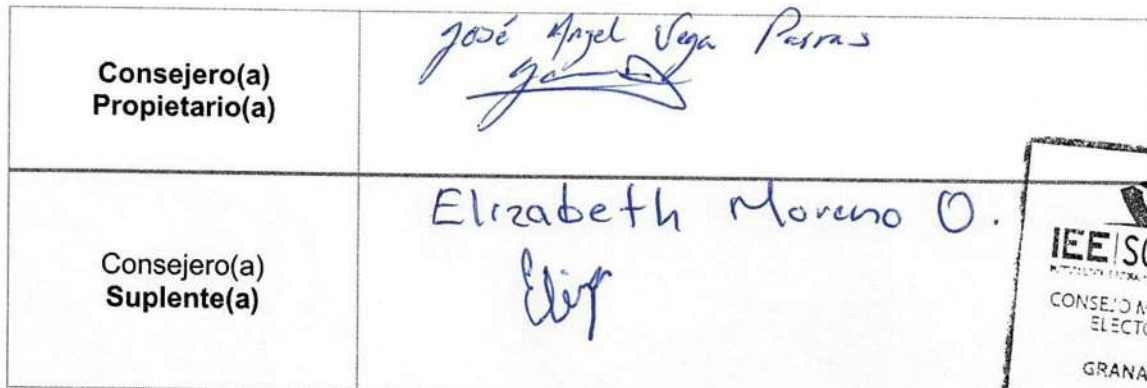 Consejero(a)
Propietario(a)
José Angel Vega Parras
Consejero(a)
Suplente(a)
Elizabeth Moreno O.
Eliz
IEE|SO
CONSEJO M
ELECTO
GRANA